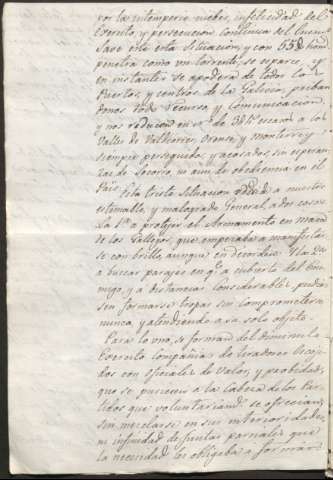 por la intemperie nieves, infelicidad del
Exercito, y persecucion continua del Enemi
Save este esta situacion, y con 55@ hom
penetra como un torrente, se esparce, y
en instantes se apodera de todos los
Puertos, y centros de la Galicia, priban
donos todo recurso, y comunicacion
y nos reducen en nº de escasos a los
Valles de Valdeorres, Orense, y Monterrey
siempre perseguidos, y acosados, sin esperan
zas de Socorro, ni aun de obediencia en el
Pais.
Esta triste situacion a nuestro
estimable, y malogrado General, a dos cosas
La 1ª a protejer el Armamento en masa
de los Gallegos, que empezaba a manifestar
se con brillo, aunque en decordia. Y la 2ª
a buscar parajes en qº a cubierto del Ene
migo, y a distancias considerables pudie
sen formarse tropas sin comprometerse
nunca, y atendiendo a su solo objeto.
Para lo uno, se forman del diminuto
Exercito Compañias de tiradores escoji
dos con oficiales de Valor, y probidad,
que se pusiesen a la Cabeza de los Par
tidos que voluntariamte se ofrecian,
sin mezclarse en sus interioridades,
ni infinidad de Juntas parciales que
la necesidad les obligaba a formar.